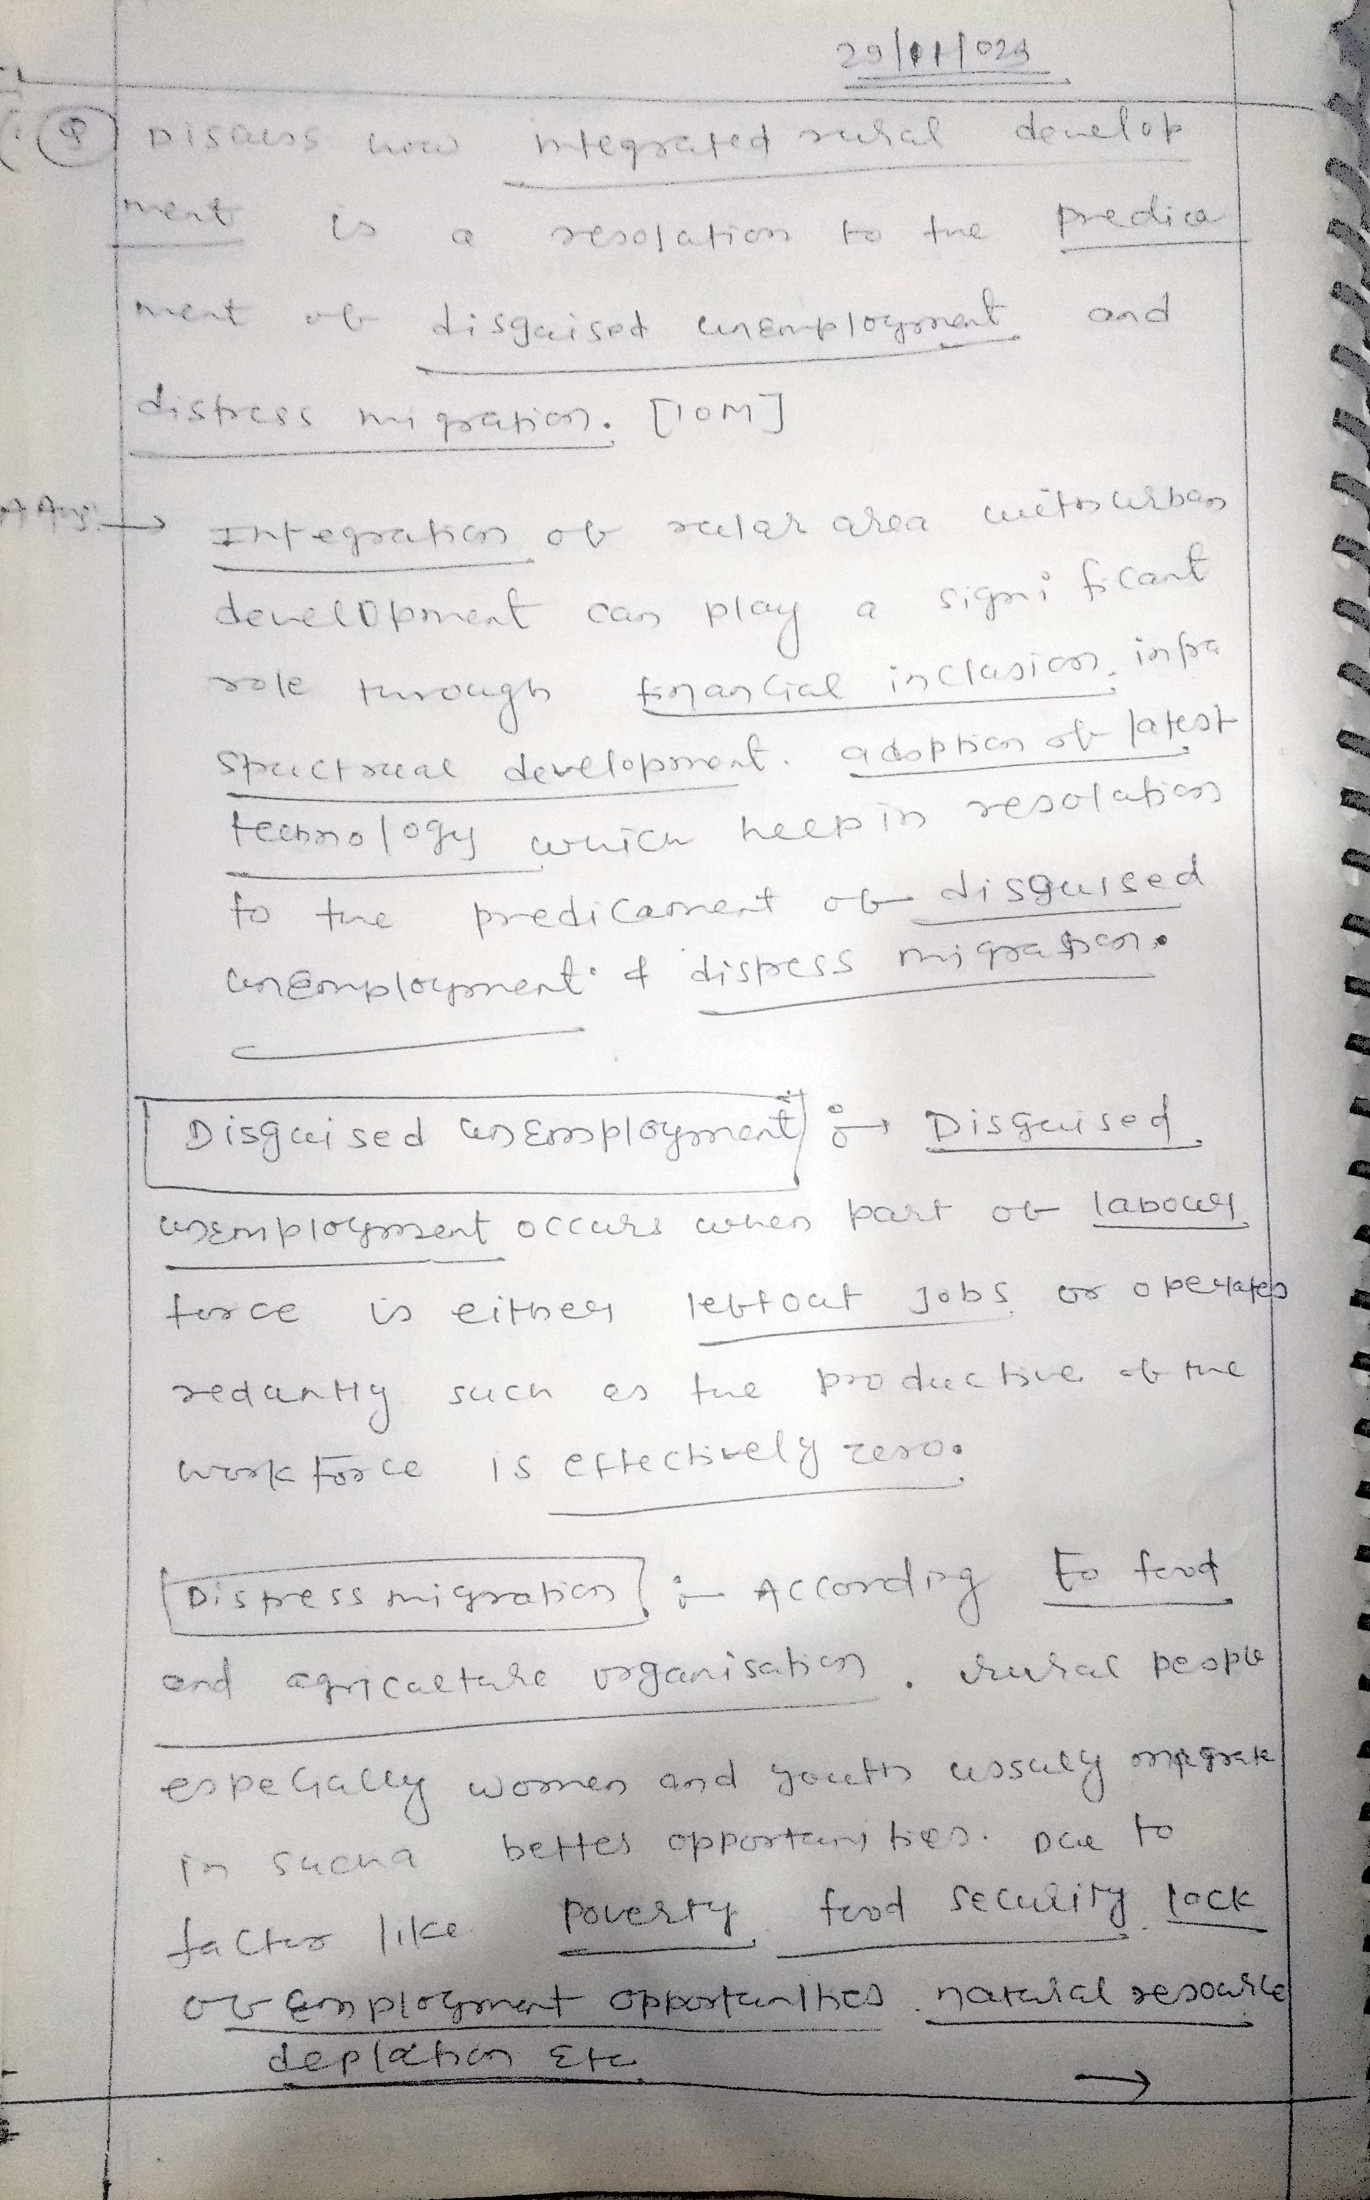 29/11/023
Q Discuss how integrated rural develop
ment is a resolation to the predica
ment of disguised unemployment and
distress migration. [10M]
Ans: → Integration of rular area with urban
development can play a significant
role through financial inclusion, infra
structrual development. adoption of latest
technology which heep in resolation
to the predicament of disguised
unemployment & distress migration.
Disguised unemployment :→ Disguised
unemployment occurs when part of labour
force is either leftout jobs or operates
redantly such as the productive of the
workforce is effectively zero.
Distress migration :- According to food
and agricultare organisation, rural people
especially women and youth ussuly migrate
in sucha better opportunities. Due to
factor like poverty, food security, lack
of employment opportunities, natural resource
deplation Etc
→